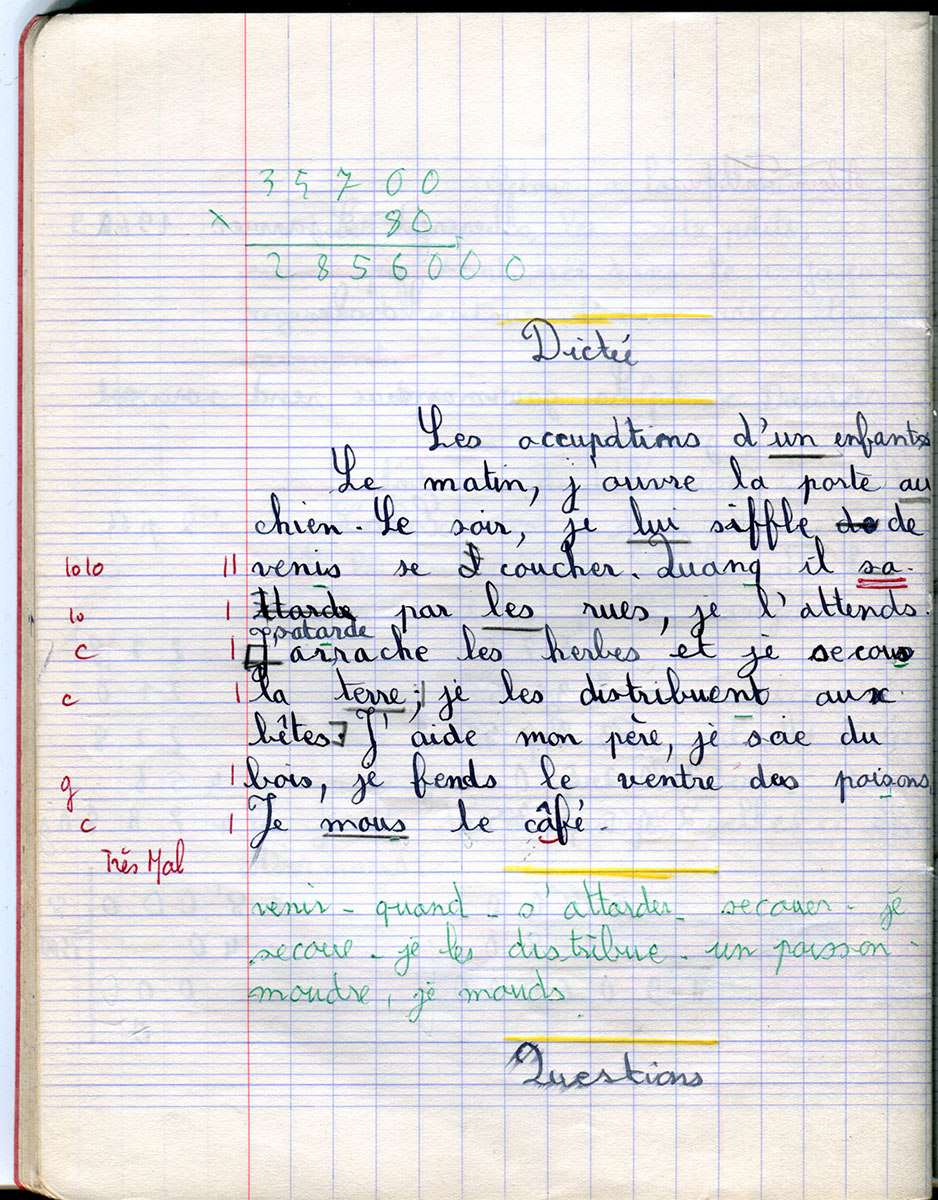 35700
× 80
2856000
Dictée
Les occupations d'un enfant
Le matin, j'ouvre la porte au
chien. Le soir, je lui siffle de
lolo 11 venis se coucher. Quang il sa
lo 1 ttarde par les rues, je l'attends.
satarde
c 1 J'arrache les herbes et je secous
c 1 la terre; je les distribuent aux
bêtes. J'aide mon père, je scie du
g 1 bois, je fends le ventre des poisons
c 1 Je mous le câfé.
Très Mal
venir - quand - s'attarder - secouer - je
secoue - je les distribue - un poisson -
moudre, je mouds
Questions